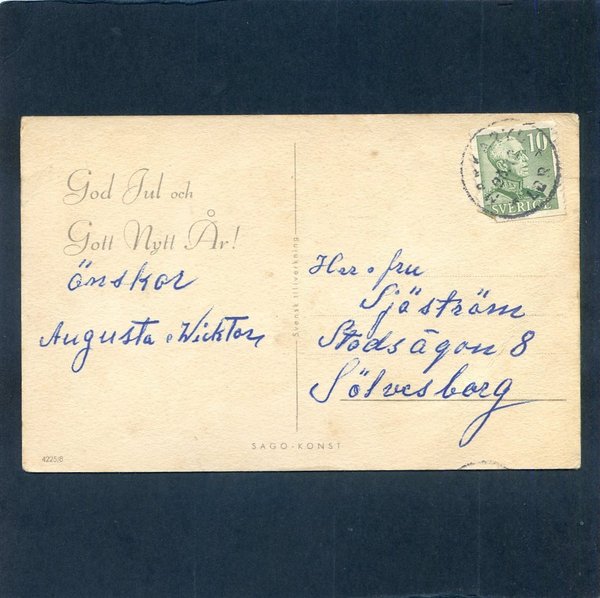 God Jul och
Gott Nytt År!
önskar
Augusta o Wickton
Svensk tillverkning
10
SVERIGE
Herr o fru
Sjöström
Stadsägon 8
Sölvesborg
SAGO-KONST
4225/8